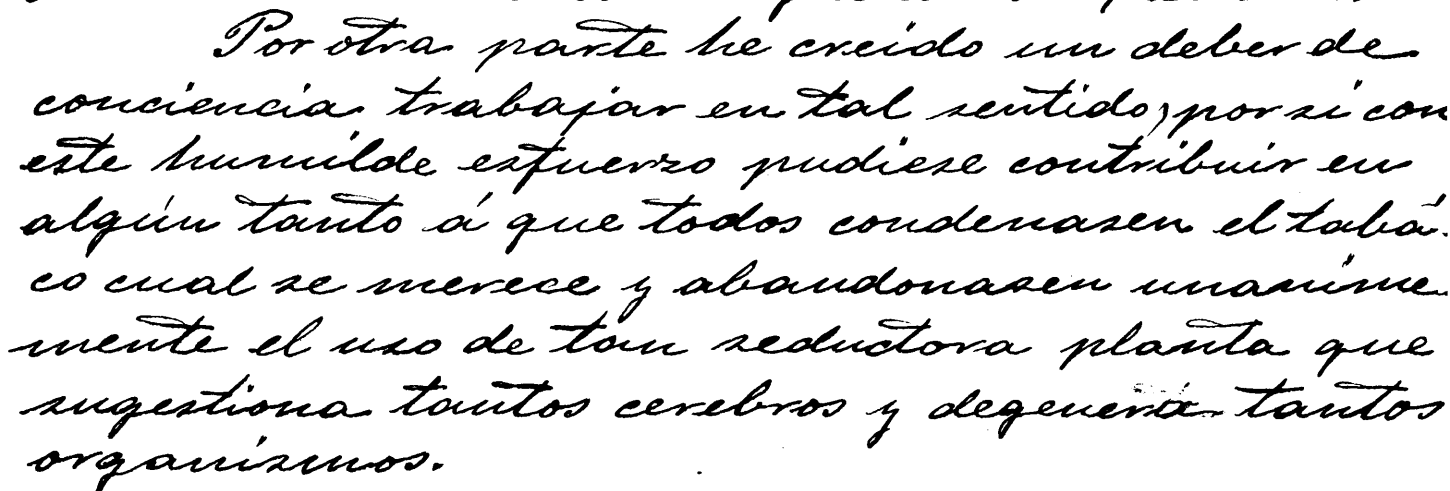 Por otra parte he creido un deber de
conciencia trabajar en tal sentido, por si con
este humilde esfuerzo pudiese contribuir en
algún tanto á que todos condenasen el taba-
co cual se merece y abandonasen unanime-
mente el uso de tan seductora planta que
sugestiona tantos cerebros y degenera tantos
organismos.